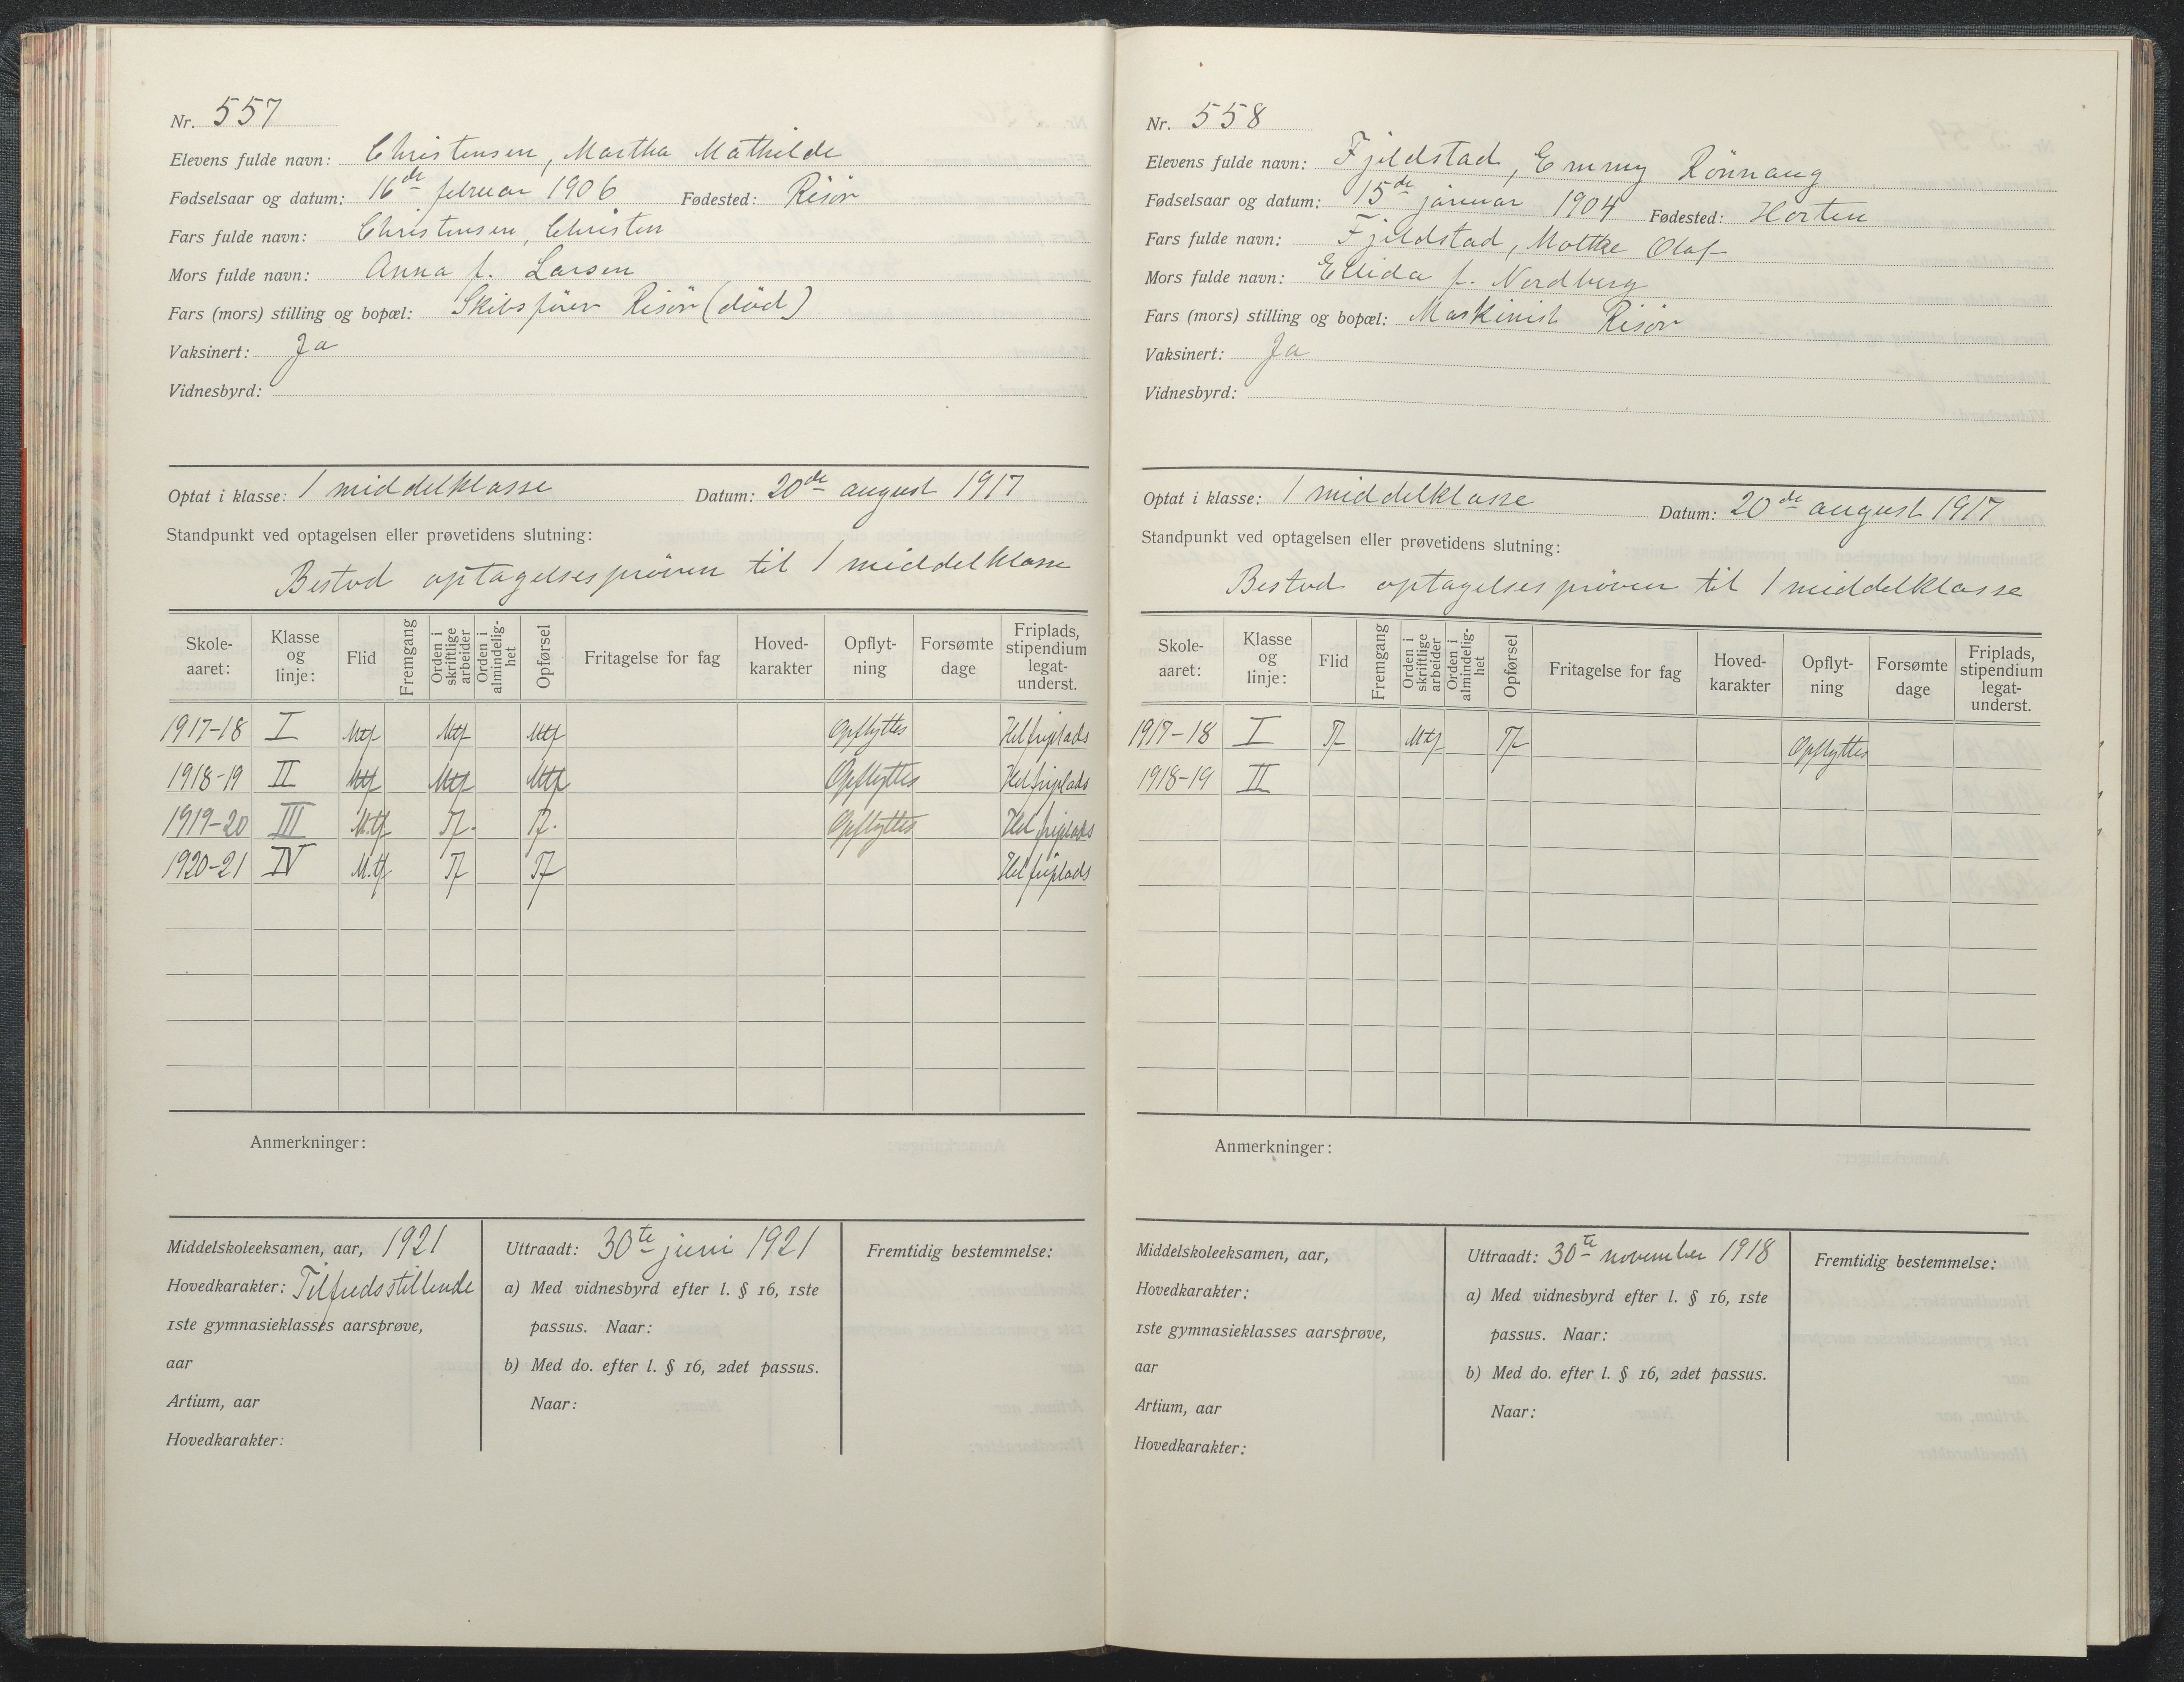 Nr. 557
Elevens fulde navn: Christensen, Martha Mathilde
Fødselsaar og datum: 16de februar 1906 Fødested: Risör
Fars fulde navn: Christensen, Christen
Mors fulde navn: Anna f. Larsen
Fars (mors) stilling og bopæl: Skibsförer Risör (död)
Vaksinert: Ja
Vidnesbyrd:
Optat i klasse: 1 middelklasse Datum: 20de august 1917
Standpunkt ved optagelsen eller prøvetidens slutning:
Bestod optagelsespröven til 1 middelklasse
Skole-aaret: Klasse og linje: Flid Fremgang Orden i skriftlige arbeider Orden i almindelig-het Opførsel Fritagelse for fag Hoved-karakter Opflyt-ning Forsømte dage Friplads, stipendium legat-underst.
1917-18 I Mtf Mtf Mtf Opflyttes Hel friplads
1918-19 II Mtf Mtf Mtf Opflyttes Hel friplads
1919-20 III M.tf Tf. Tf. Opflyttes Hel friplads
1920-21 IV M.tf Tf Tf Hel friplads
Anmerkninger:
Middelskoleeksamen, aar, 1921
Hovedkarakter: Tilfredsstillende
1ste gymnasieklasses aarsprøve,
aar
Artium, aar
Hovedkarakter:
Uttraadt: 30te juni 1921
a) Med vidnesbyrd efter l. § 16, 1ste
passus. Naar:
b) Med do. efter l. § 16, 2det passus.
Naar:
Fremtidig bestemmelse:
Nr. 558
Elevens fulde navn: Fjeldstad, Emmy Rönnaug
Fødselsaar og datum: 15de januar 1904 Fødested: Horten
Fars fulde navn: Fjeldstad, Moltke Olaf
Mors fulde navn: Ellida f. Nordberg
Fars (mors) stilling og bopæl: Maskinist Risör
Vaksinert: Ja
Vidnesbyrd:
Optat i klasse: 1 middelklasse Datum: 20de august 1917
Standpunkt ved optagelsen eller prøvetidens slutning:
Bestod optagelsespröven til 1 middelklasse
Skole-aaret: Klasse og linje: Flid Fremgang Orden i skriftlige arbeider Orden i almindelig-het Opførsel Fritagelse for fag Hoved-karakter Opflyt-ning Forsømte dage Friplads, stipendium legat-underst.
1917-18 I Tf Mtf Tf Opflyttes
1918-19 II
Anmerkninger:
Middelskoleeksamen, aar,
Hovedkarakter:
1ste gymnasieklasses aarsprøve,
aar
Artium, aar
Hovedkarakter:
Uttraadt: 30te november 1918
a) Med vidnesbyrd efter l. § 16, 1ste
passus. Naar:
b) Med do. efter l. § 16, 2det passus.
Naar:
Fremtidig bestemmelse: